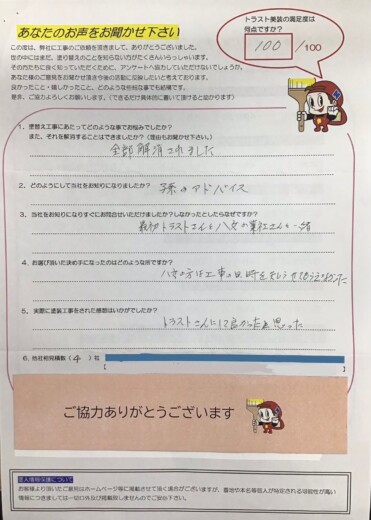 あなたのお声をお聞かせ下さい
この度は、弊社に工事のご依頼を頂きまして、ありがとうございました。
世の中にはまだ、塗り替えのことを知らない方がたくさんいらっしゃいます。
その方たちに良く知っていただくために、アンケートへ協力していただけないでしょうか。
あなた様のご意見をお聞かせ頂き今後の活動に反映したいと考えております。
良かったこと・嬉しかったこと、どのような些細な事でも結構です。
是非、ご協力よろしくお願いします。(できるだけ具体的に書いて頂けると助かります)
トラスト美装の満足度は
何点ですか?
100 /100
1. 塗替え工事にあたってどのような事でお悩みでしたか?
また、それを解消することはできましたか?(理由もお聞かせ下さい。)
全部解消されました
2. どのようにして当社をお知りになりましたか?
孫のアドバイス
3. 当社をお知りになりすぐにお問合せいただけましたか?しなかったとしたらなぜですか?
最初トラストさんも
4. お選び頂いた決め手になったのはどのような所ですか?
5. 実際に塗装工事をされた感想はいかがでしたか?
トラストさんにして良かったと思った
6. 他社相見積数(4)社
ご協力ありがとうございます
個人情報保護について
お客様より頂いたご意見はホームページ等に掲載させて頂く場合がございますが、番地や本名等個人が特定される可能性が高い
情報につきましては一切口外及び掲載致しませんのでご安心下さい。